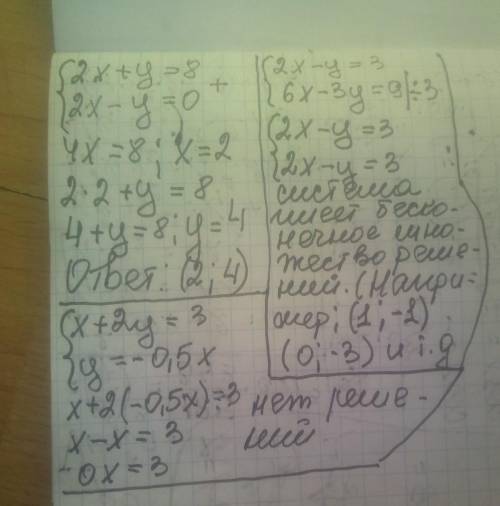 {2x+y=8
{2x-y=0 +
4x=8; x=2
2·2+y=8
4+y=8; y=4
Ответ: (2; 4)
{2x-y=3
{6x-3y=9|÷3
{2x-y=3
{2x-y=3
система
имеет беско-
нечное мно-
жество реше-
ний. (Напри-
мер; (1; -1)
(0; -3) и т.д
{x+2y=3
{y=-0,5x
x+2(-0,5x)=3 нет реше-
x-x=3 ний
-0x=3